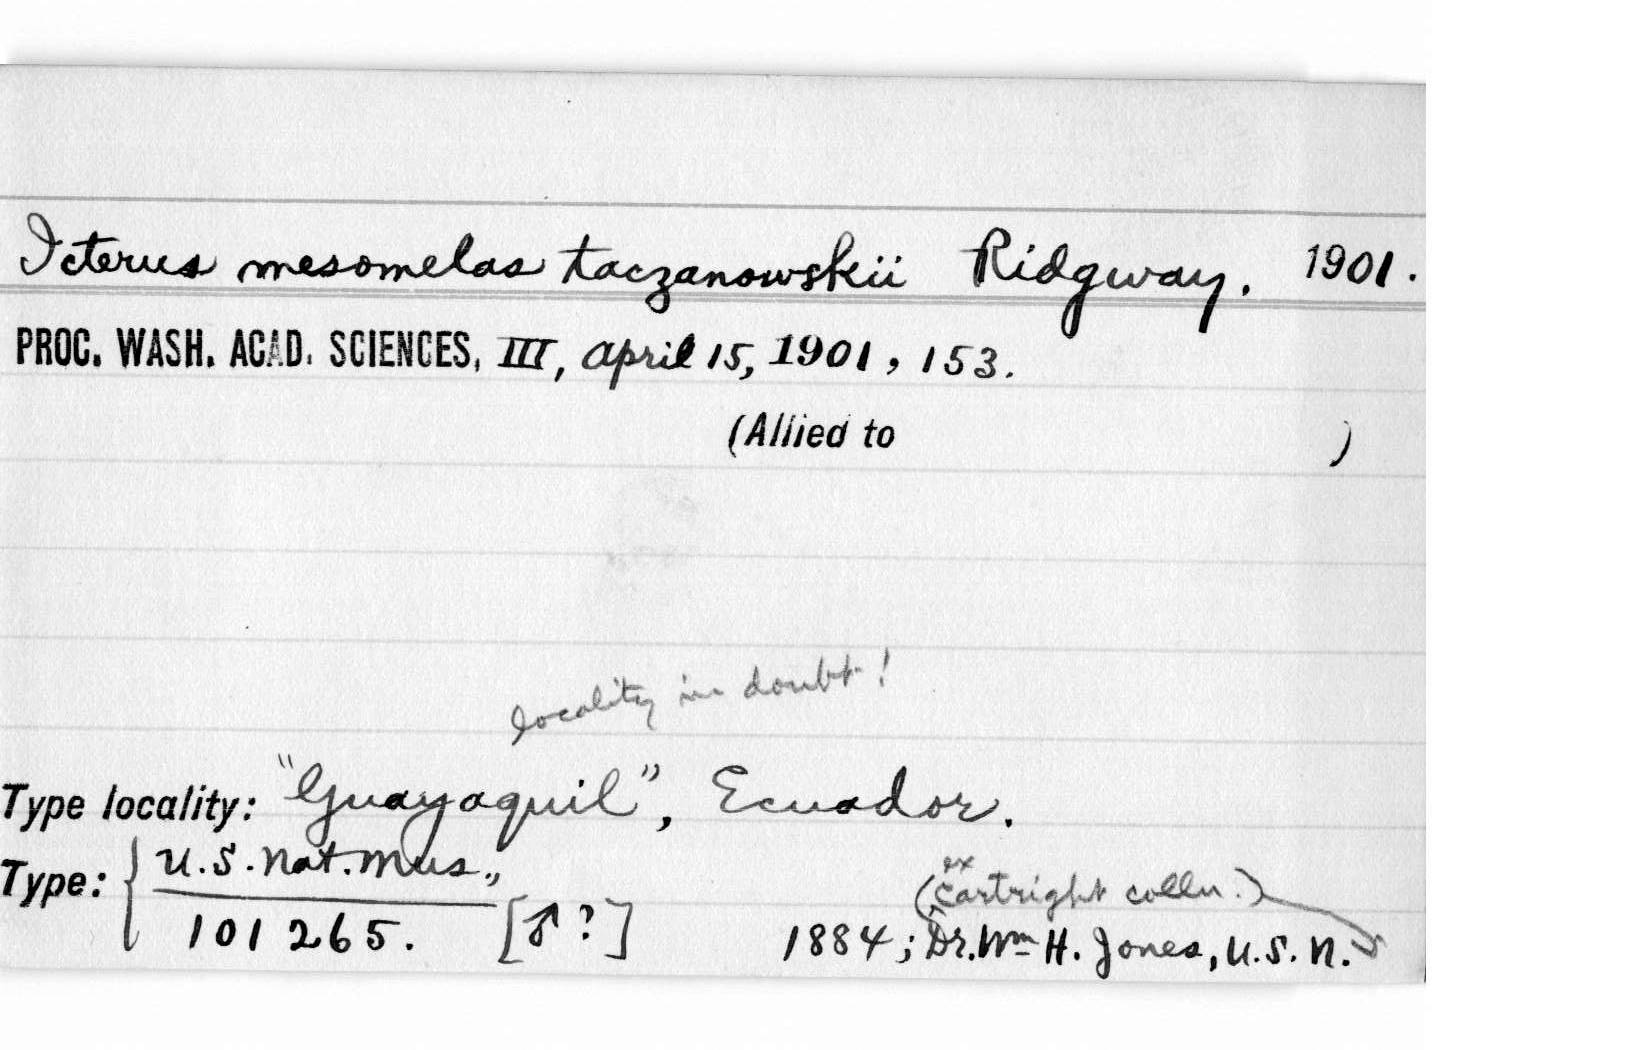 Icterus mesomelas taczanowskii Ridgway. 1901.
PROC. WASH. ACAD. SCIENCES, III, April 15, 1901, 153.
(Allied to )
locality in doubt!
Type locality: "Guayaquil", Ecuador.
Type: { U.S. Nat. Mus.,
(ex Cartright colln.)
101265. [♂?] 1884; Dr. Wm H. Jones, U.S.N.